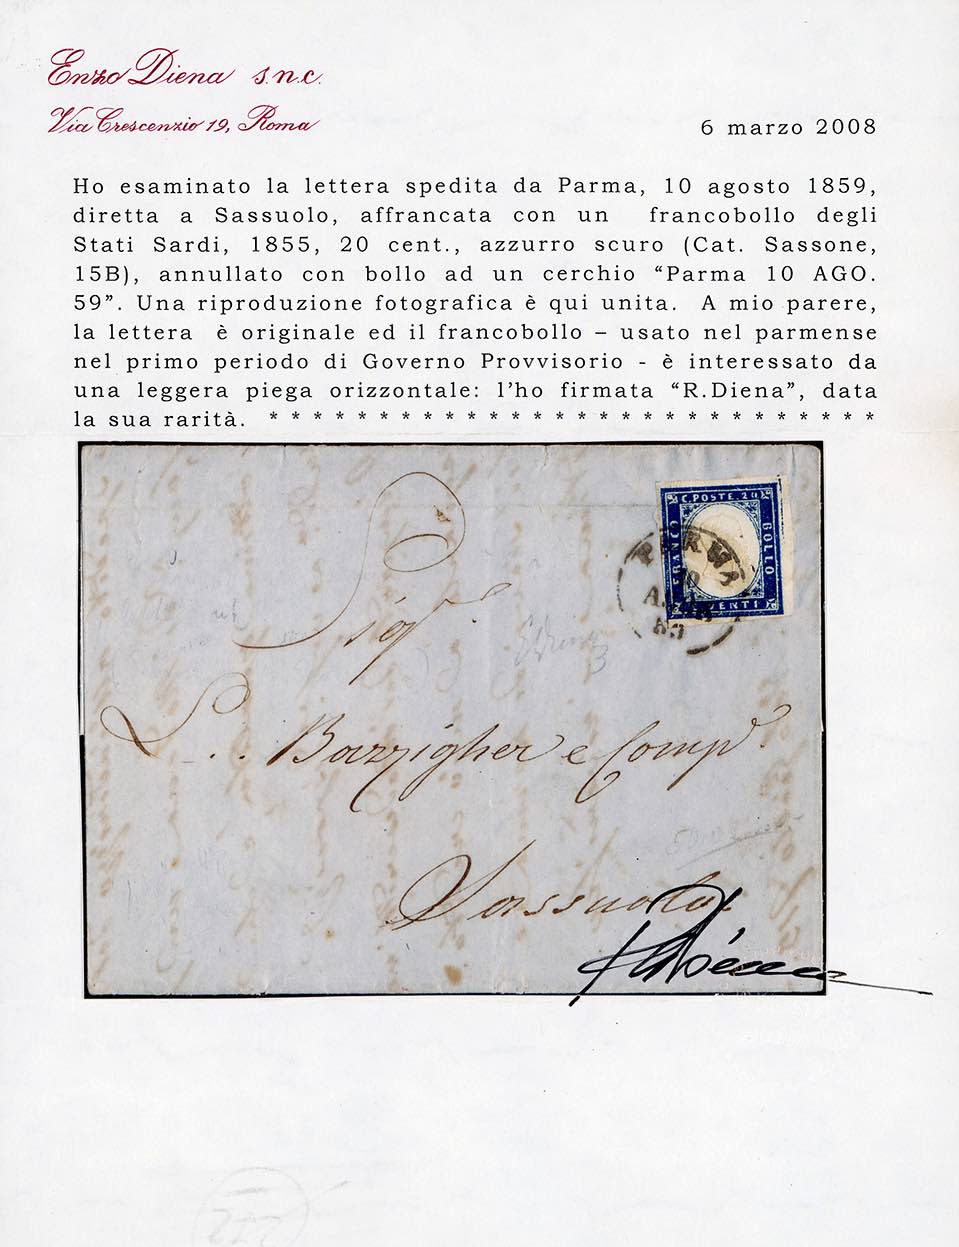 Enzo Diena s.n.c.
Via Crescenzio 19, Roma
6 marzo 2008
Ho esaminato la lettera spedita da Parma, 10 agosto 1859,
diretta a Sassuolo, affrancata con un francobollo degli
Stati Sardi, 1855, 20 cent., azzurro scuro (Cat. Sassone,
15B), annullato con bollo ad un cerchio “Parma 10 AGO.
59”. Una riproduzione fotografica è qui unita. A mio parere,
la lettera è originale ed il francobollo – usato nel parmense
nel primo periodo di Governo Provvisorio - è interessato da
una leggera piega orizzontale: l’ho firmata “R.Diena”, data
la sua rarità. * * * * * * * * * * * * * * * * * * * * * * * * * * * *
C. POSTE. 20
FRANCO
BOLLO
PARMA
10
59
Sig.
Bazzigher e Comp.
Sassuolo
RDiena